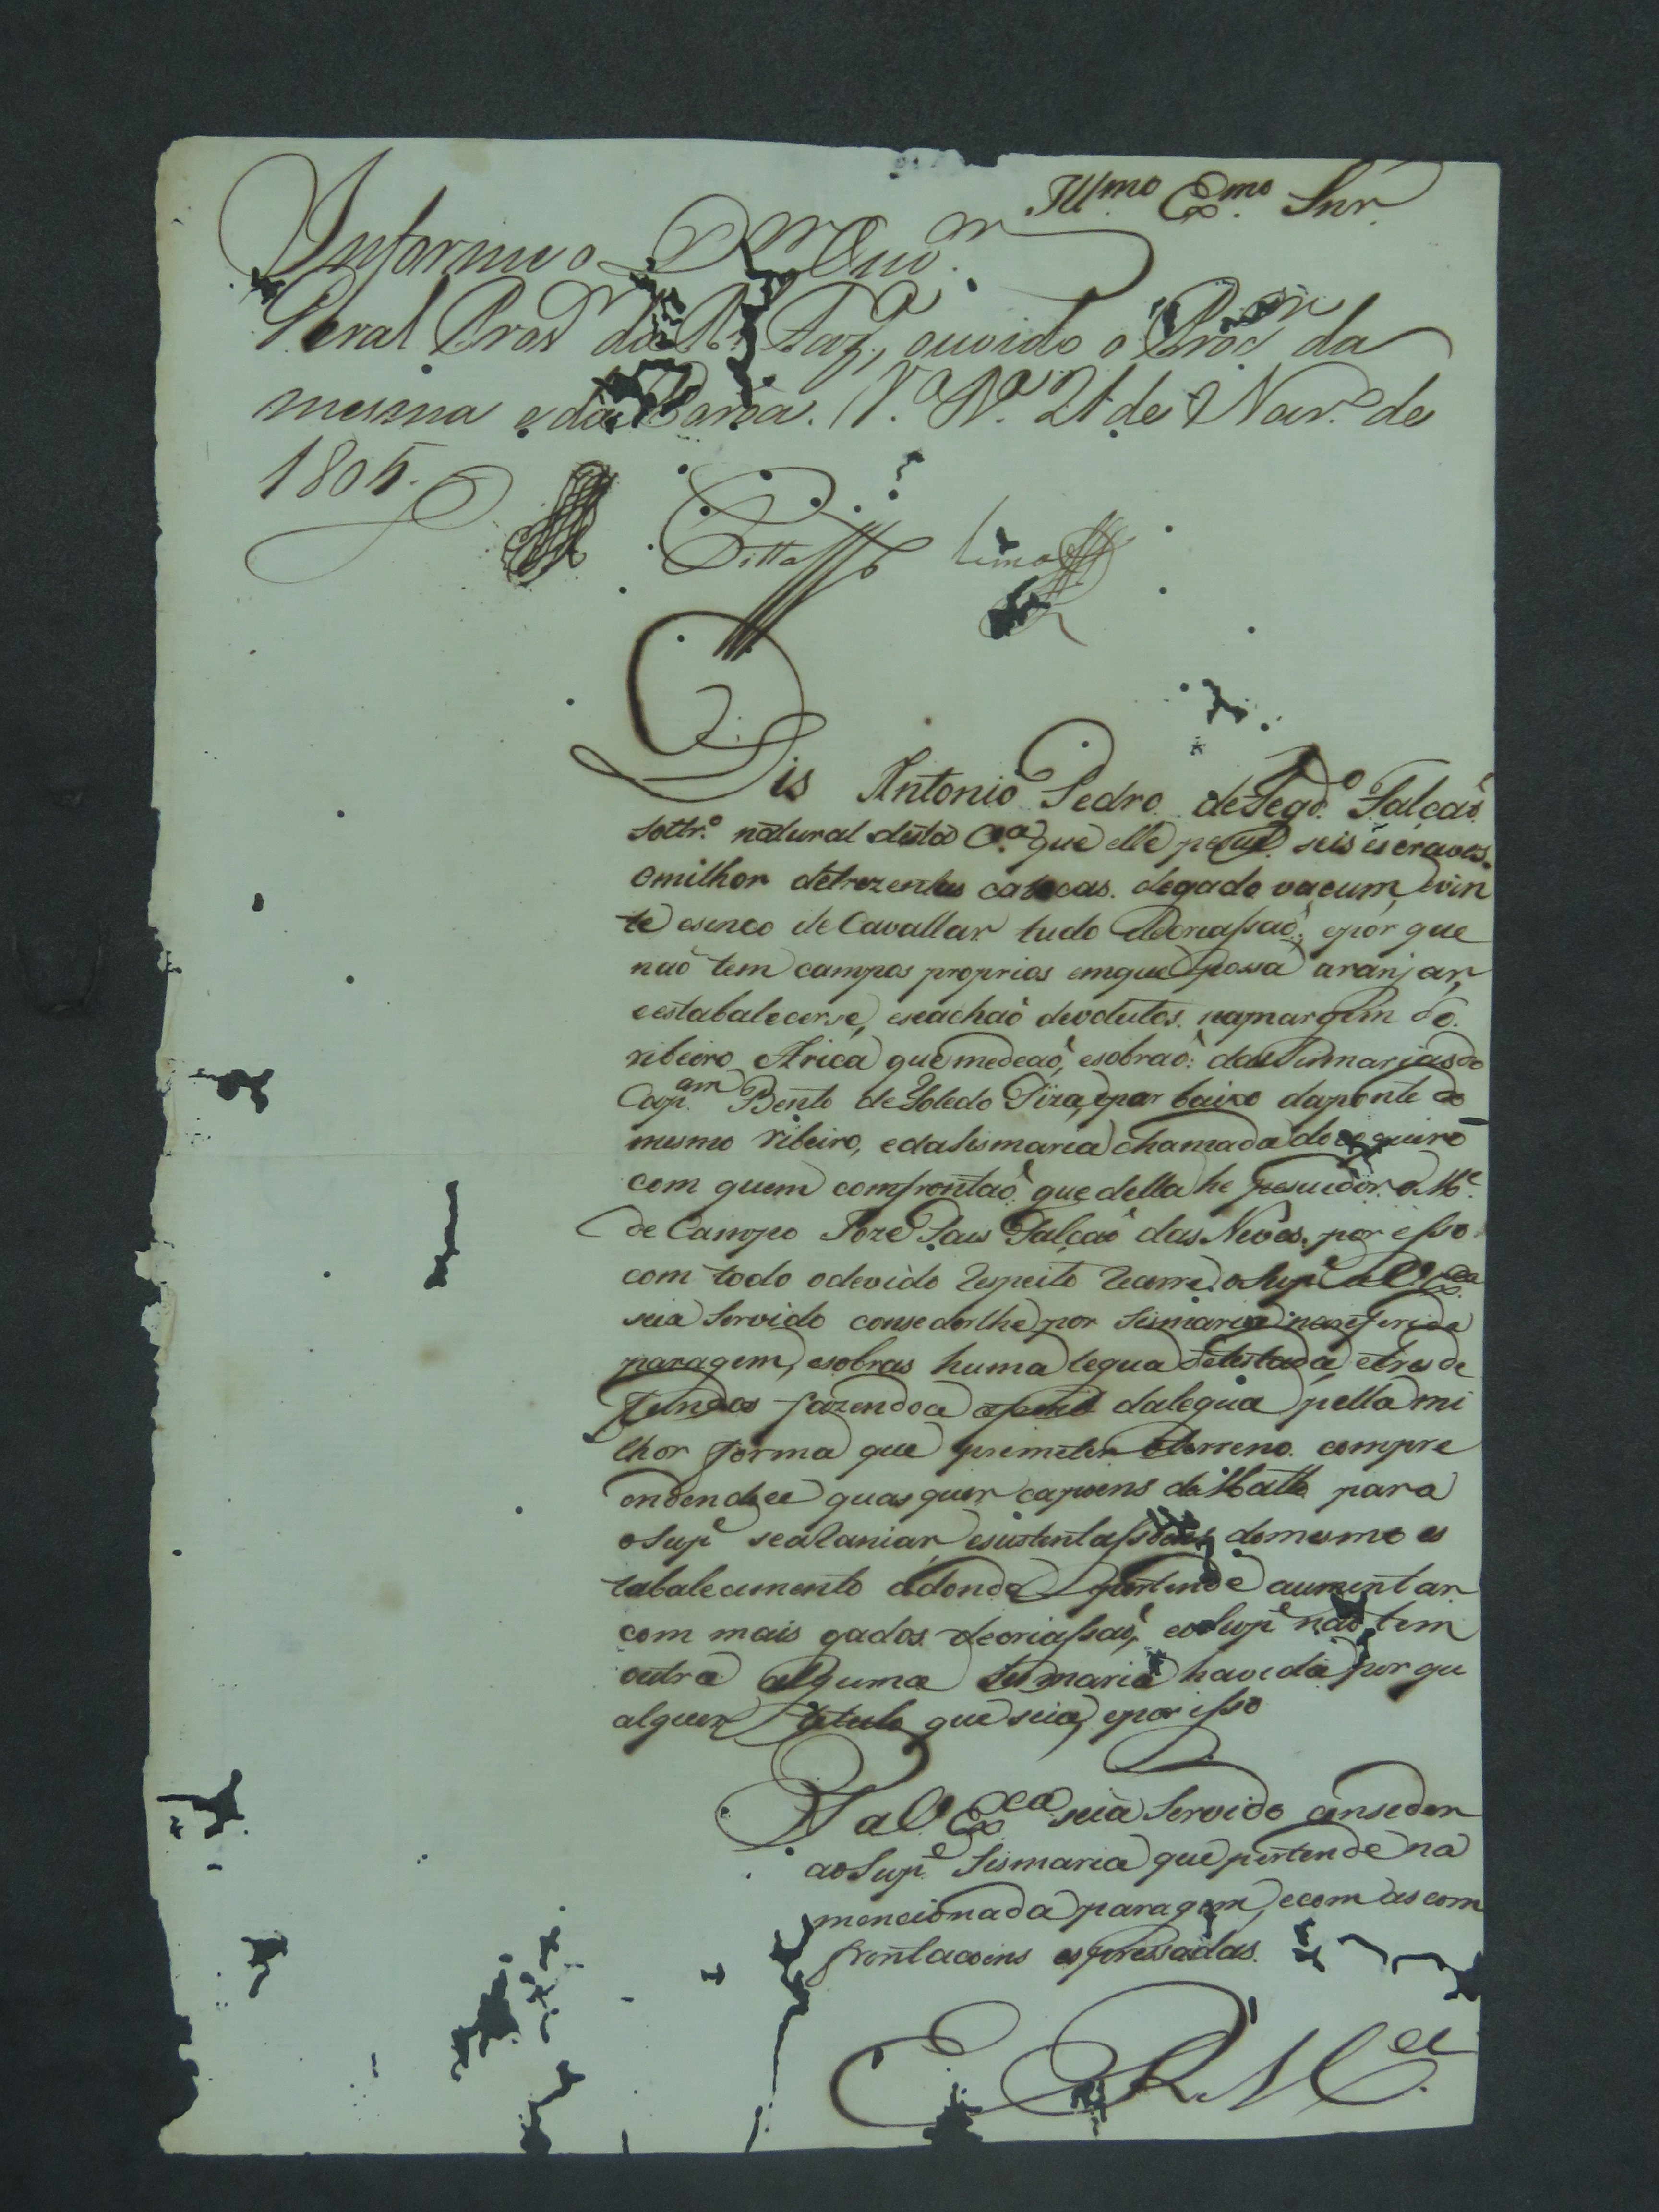 Ill.mo Ex.mo Snr.
Informe o D.or Ouv.or
Geral Prov.or da R.l Faz.a, ouvido o Proc.or da
mesma e da Coroa. V.a B.a 21 de Nov.o de
1805.
Lima
Dis Antonio Pedro de Fegd.o Falcaõ
soltr.o natural desta C.a que elle pesue seis escravos
e milhor de trezentas cabecas de gado vacum, e vin
te e sinco de Cavallar tudo de Criassaõ, e por que
naõ tem campos proprios em que possa aranjar,
e estabalecerse, e se achaõ devolutos na margem do
ribeiro Arica que medeaõ, e sobraõ das Sismarias do
Cap.am Bento de Toledo Piza, e por baixo da ponte do
mesmo ribeiro, e da sismaria chamada do
com quem comfrontaõ que della he pesuidor o M.e
de Campo Joze Paes Falcaõ das Neves, por esso
com todo o devido respeito recorre o Sup.e a V. Ex.cia
seia servido consederlhe por Sismaria na referida
paragem, e sobras huma legua de testada e tres de
fundos fazendo a dalegua pella mi
lhor forma que premeter o terreno compre
endendo quasquer capoens de Matto para
o Sup.e se alaniar e sustentassoens do mesmo es
tabalecimento adonde pertende aumentar
com mais gados de criassaõ, e o Sup.e naõ tem
outra alguma sismaria havida por qu
alquer titulo que seia, e por isso
P. a V. Ex.cia seia Servido conseder
ao Sup.e Sismaria que pertende na
mencionada paragem, e com as com
frontacoens espressadas.
E R M.ce